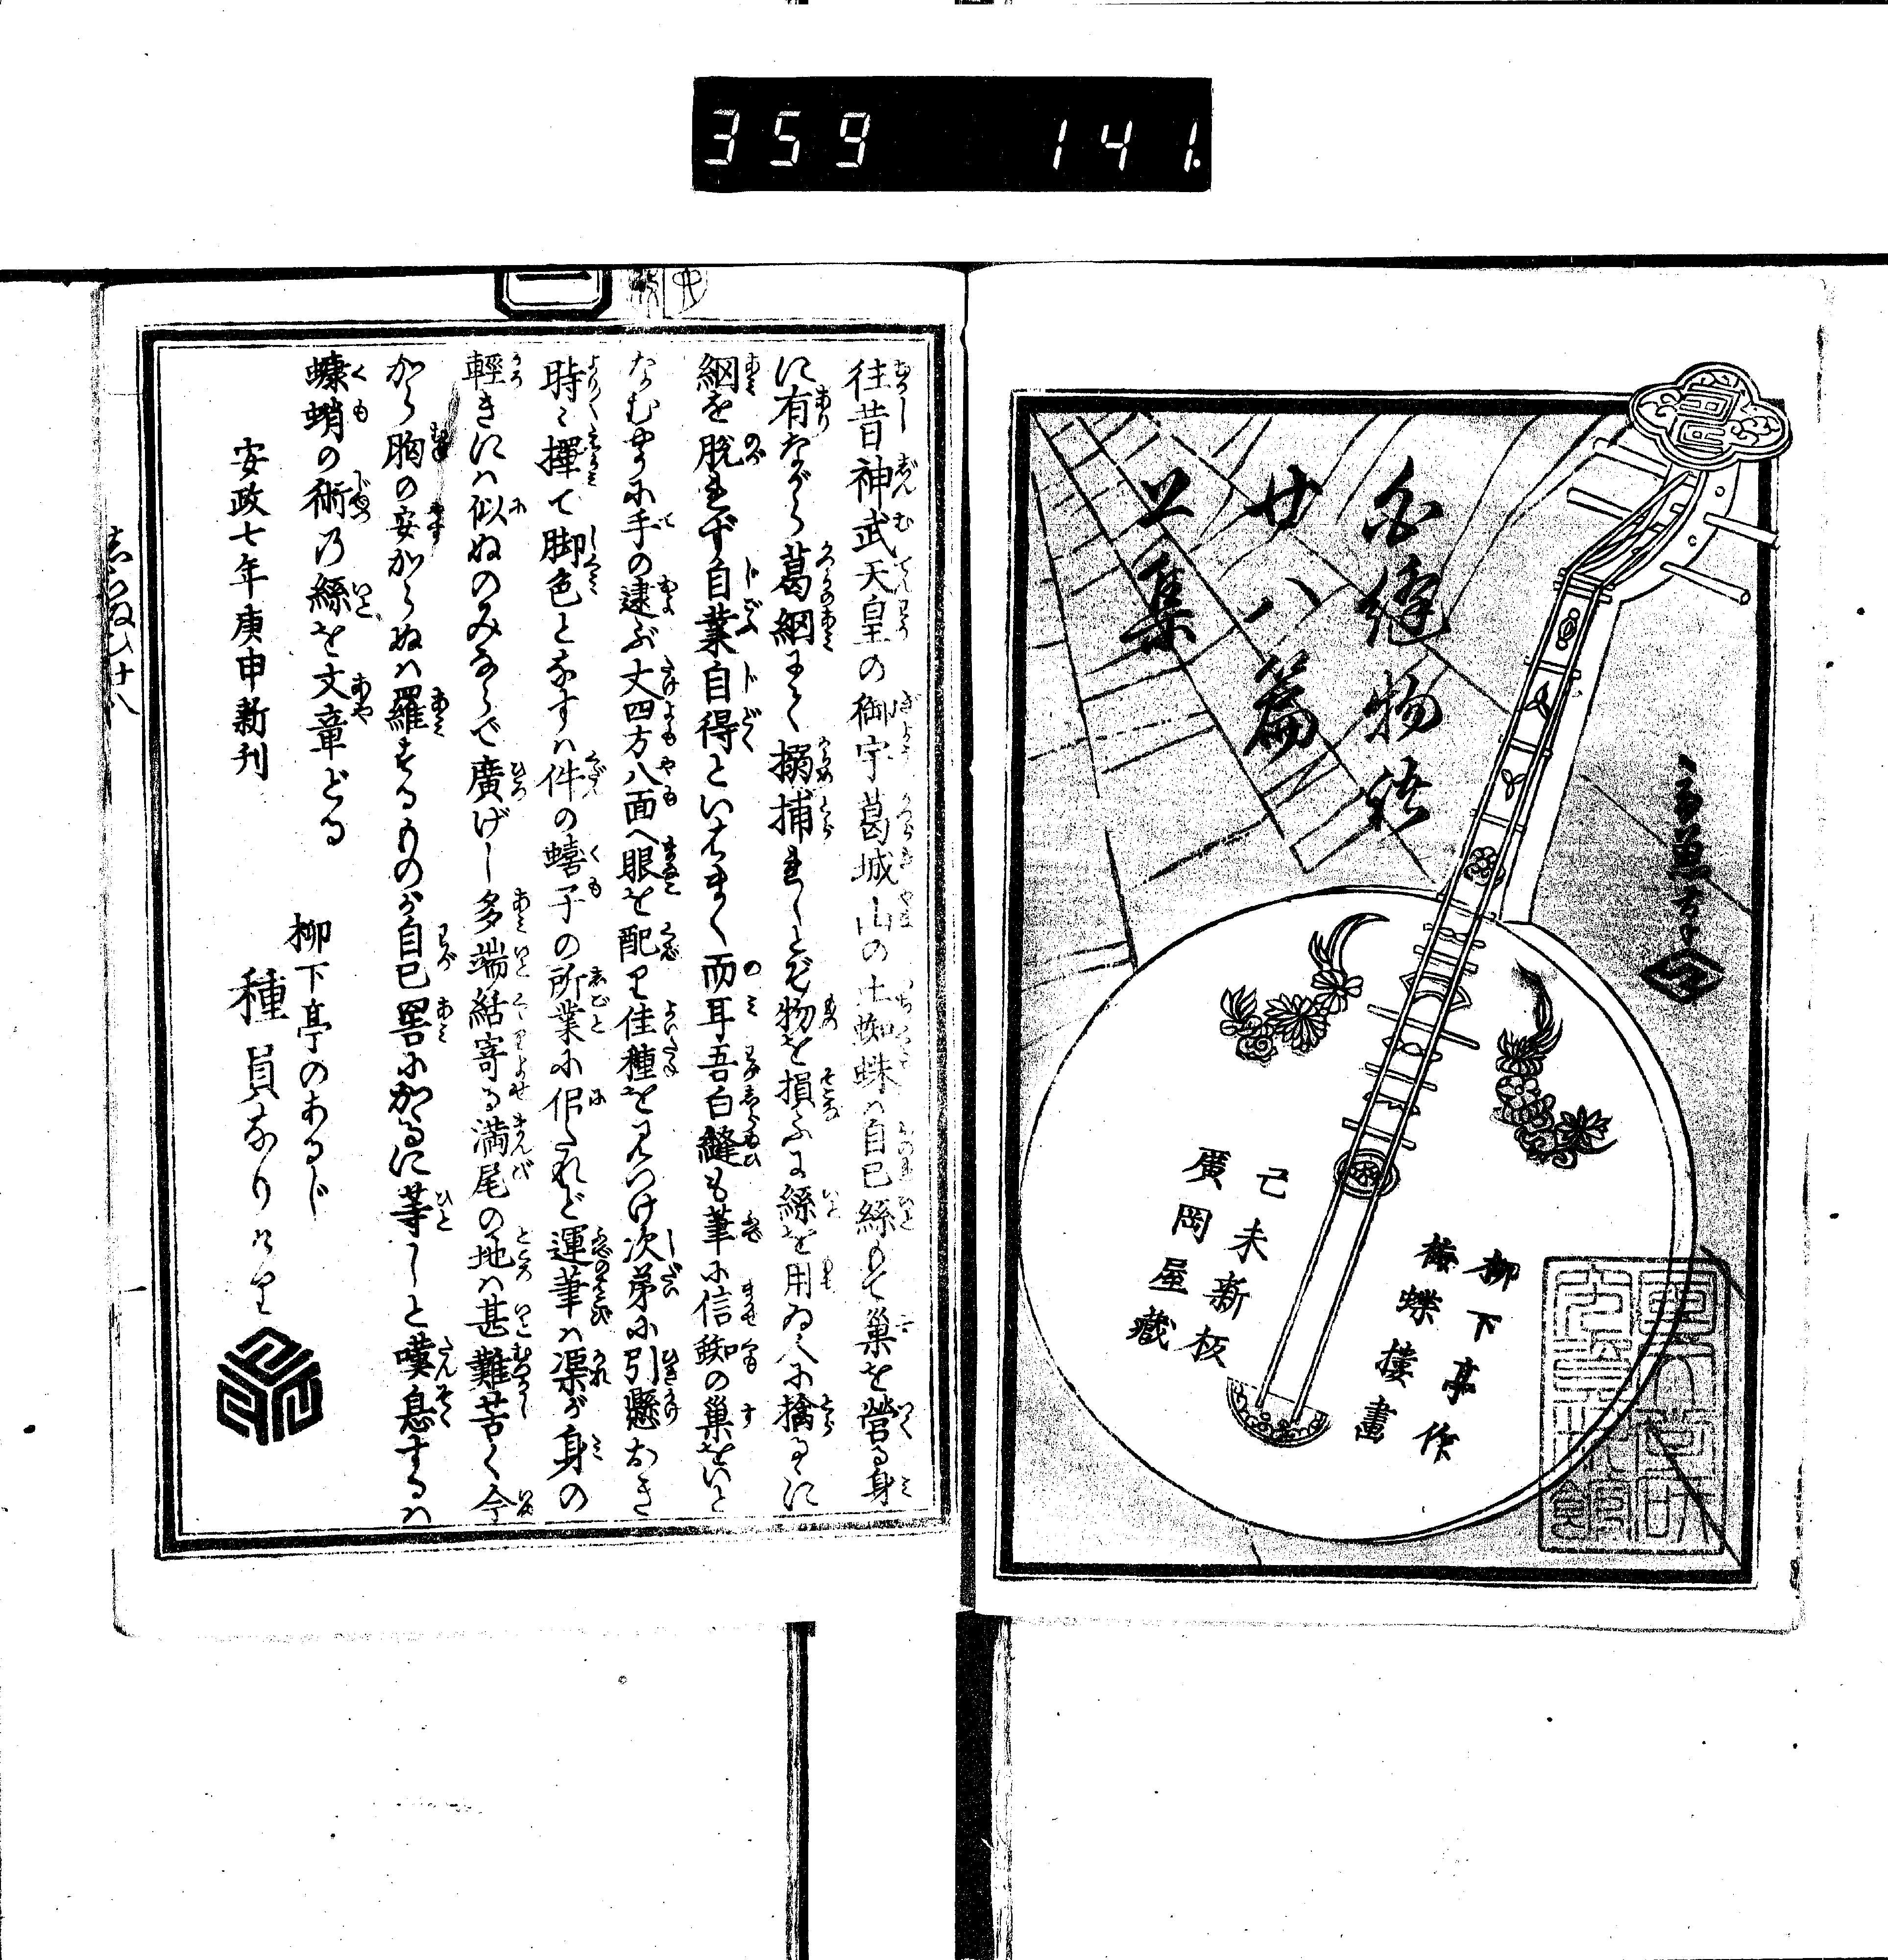 359 141.
白縫物語
廿八篇
上集
柳下亭作
梅蝶樓畫
己未新板
廣岡屋藏
往昔神武天皇の御宇葛城山の土蜘蛛ハ自己絲もて巣を營る身
に有ながら葛綱にて搦捕れしとぞ物を損ふに絲を用ゐ人に擒るゝに
綱を脱れず自業自得といはまく而耳吾白縫も筆に信蜘の巣をいと
なむ中に手の逮ぶ丈四方八面へ眼を配り佳種を見つけ次第に引懸おき
時々擇て脚色となすハ件の蟢子の所業に佀たれど運筆ハ渠が身の
輕きにハ似ぬのみならで廣げし多端結寄る満尾の地ハ甚難苦く今
から胸の安からぬハ羅するものが自己罟にかゝるに等しと嘆息するハ
蠊蛸の術乃絲を文章どる
柳下亭のあるじ
種員なりけり
安政七年庚申新刊
志らぬひ廿八